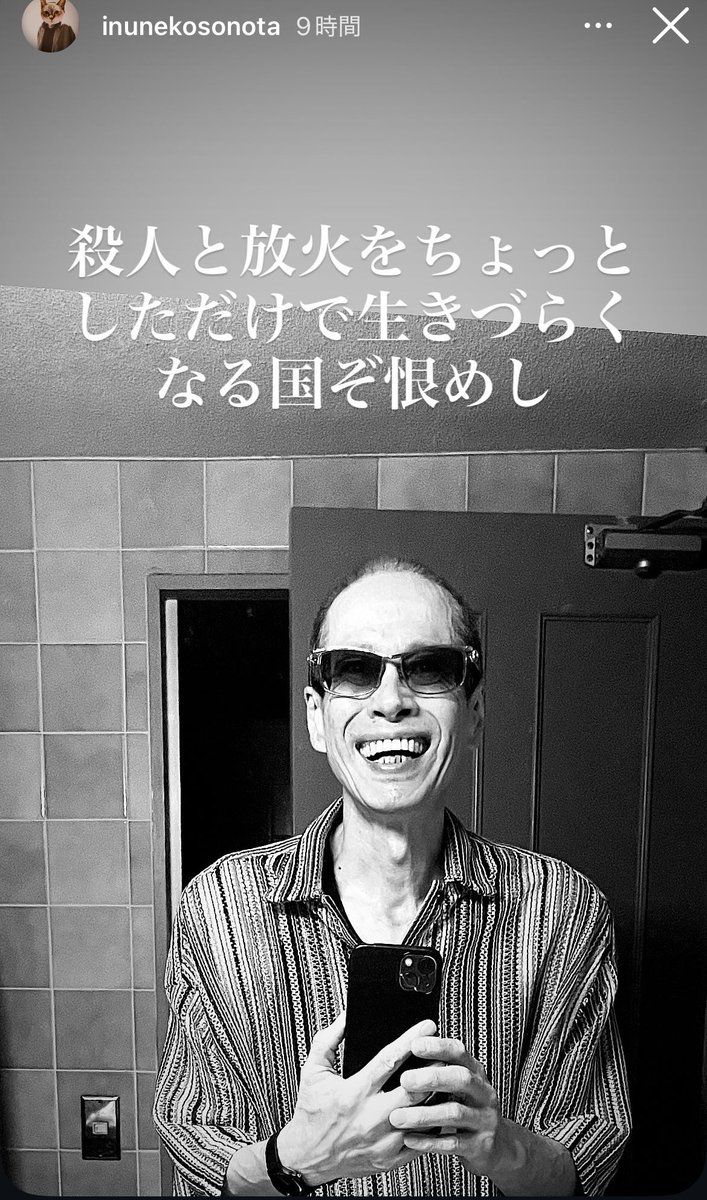 inunekosonota 9時間
殺人と放火をちょっと
しただけで生きづらく
なる国ぞ恨めし